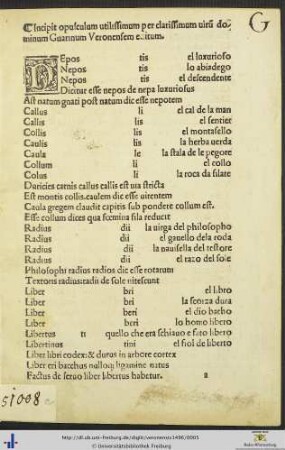 G
Incipit opusculum utilissimum per clarissimum uirū do
minum Guarinum Veronensem editum.
Nepos tis el luxurioso
Nepos tis lo abiadego
Nepos tis el descendente
Dicitur esse nepos de nepa luxuriosus
Ast natum gnati post natum dic esse nepotem
Callus li el cal de la man
Callis lis el sentier
Collis lis el montasello
Caulis lis la herba uerda
Caula le la stala de le pegore
Collum li el collo
Colus li la roca da filare
Daricies carnis callus callis est uia stricta
Est montis collis caulem dic esse uirentem
Caula gregem claudit capitis sub pondere collum est.
Esse collum dices qua fœmina fila reducit
Radius dii la uirga del philosopho
Radius dii el gauello dela roda
Radius dii la nauisella del testore
Radius dii el razo del sole
Philosophi radius radios dic esse rotarum
Textoris radius radii de sole nitescunt
Liber bri el libro
Liber bri la scorza dura
Liber beri el dio bacho
Liber beri lo homo libero
Libertus ti quello che era schiauo e fato libero
Libertinus tini el fiol de liberto
Liber libri codex: & durus in arbore cortex
Liber eri bacchus nulloq; ligamine natus
Factus de seruo liber libertus habetur. a
51008
http://dl.ub.uni-freiburg.de/diglit/veronensis1490/0001
© Universitätsbibliothek Freiburg